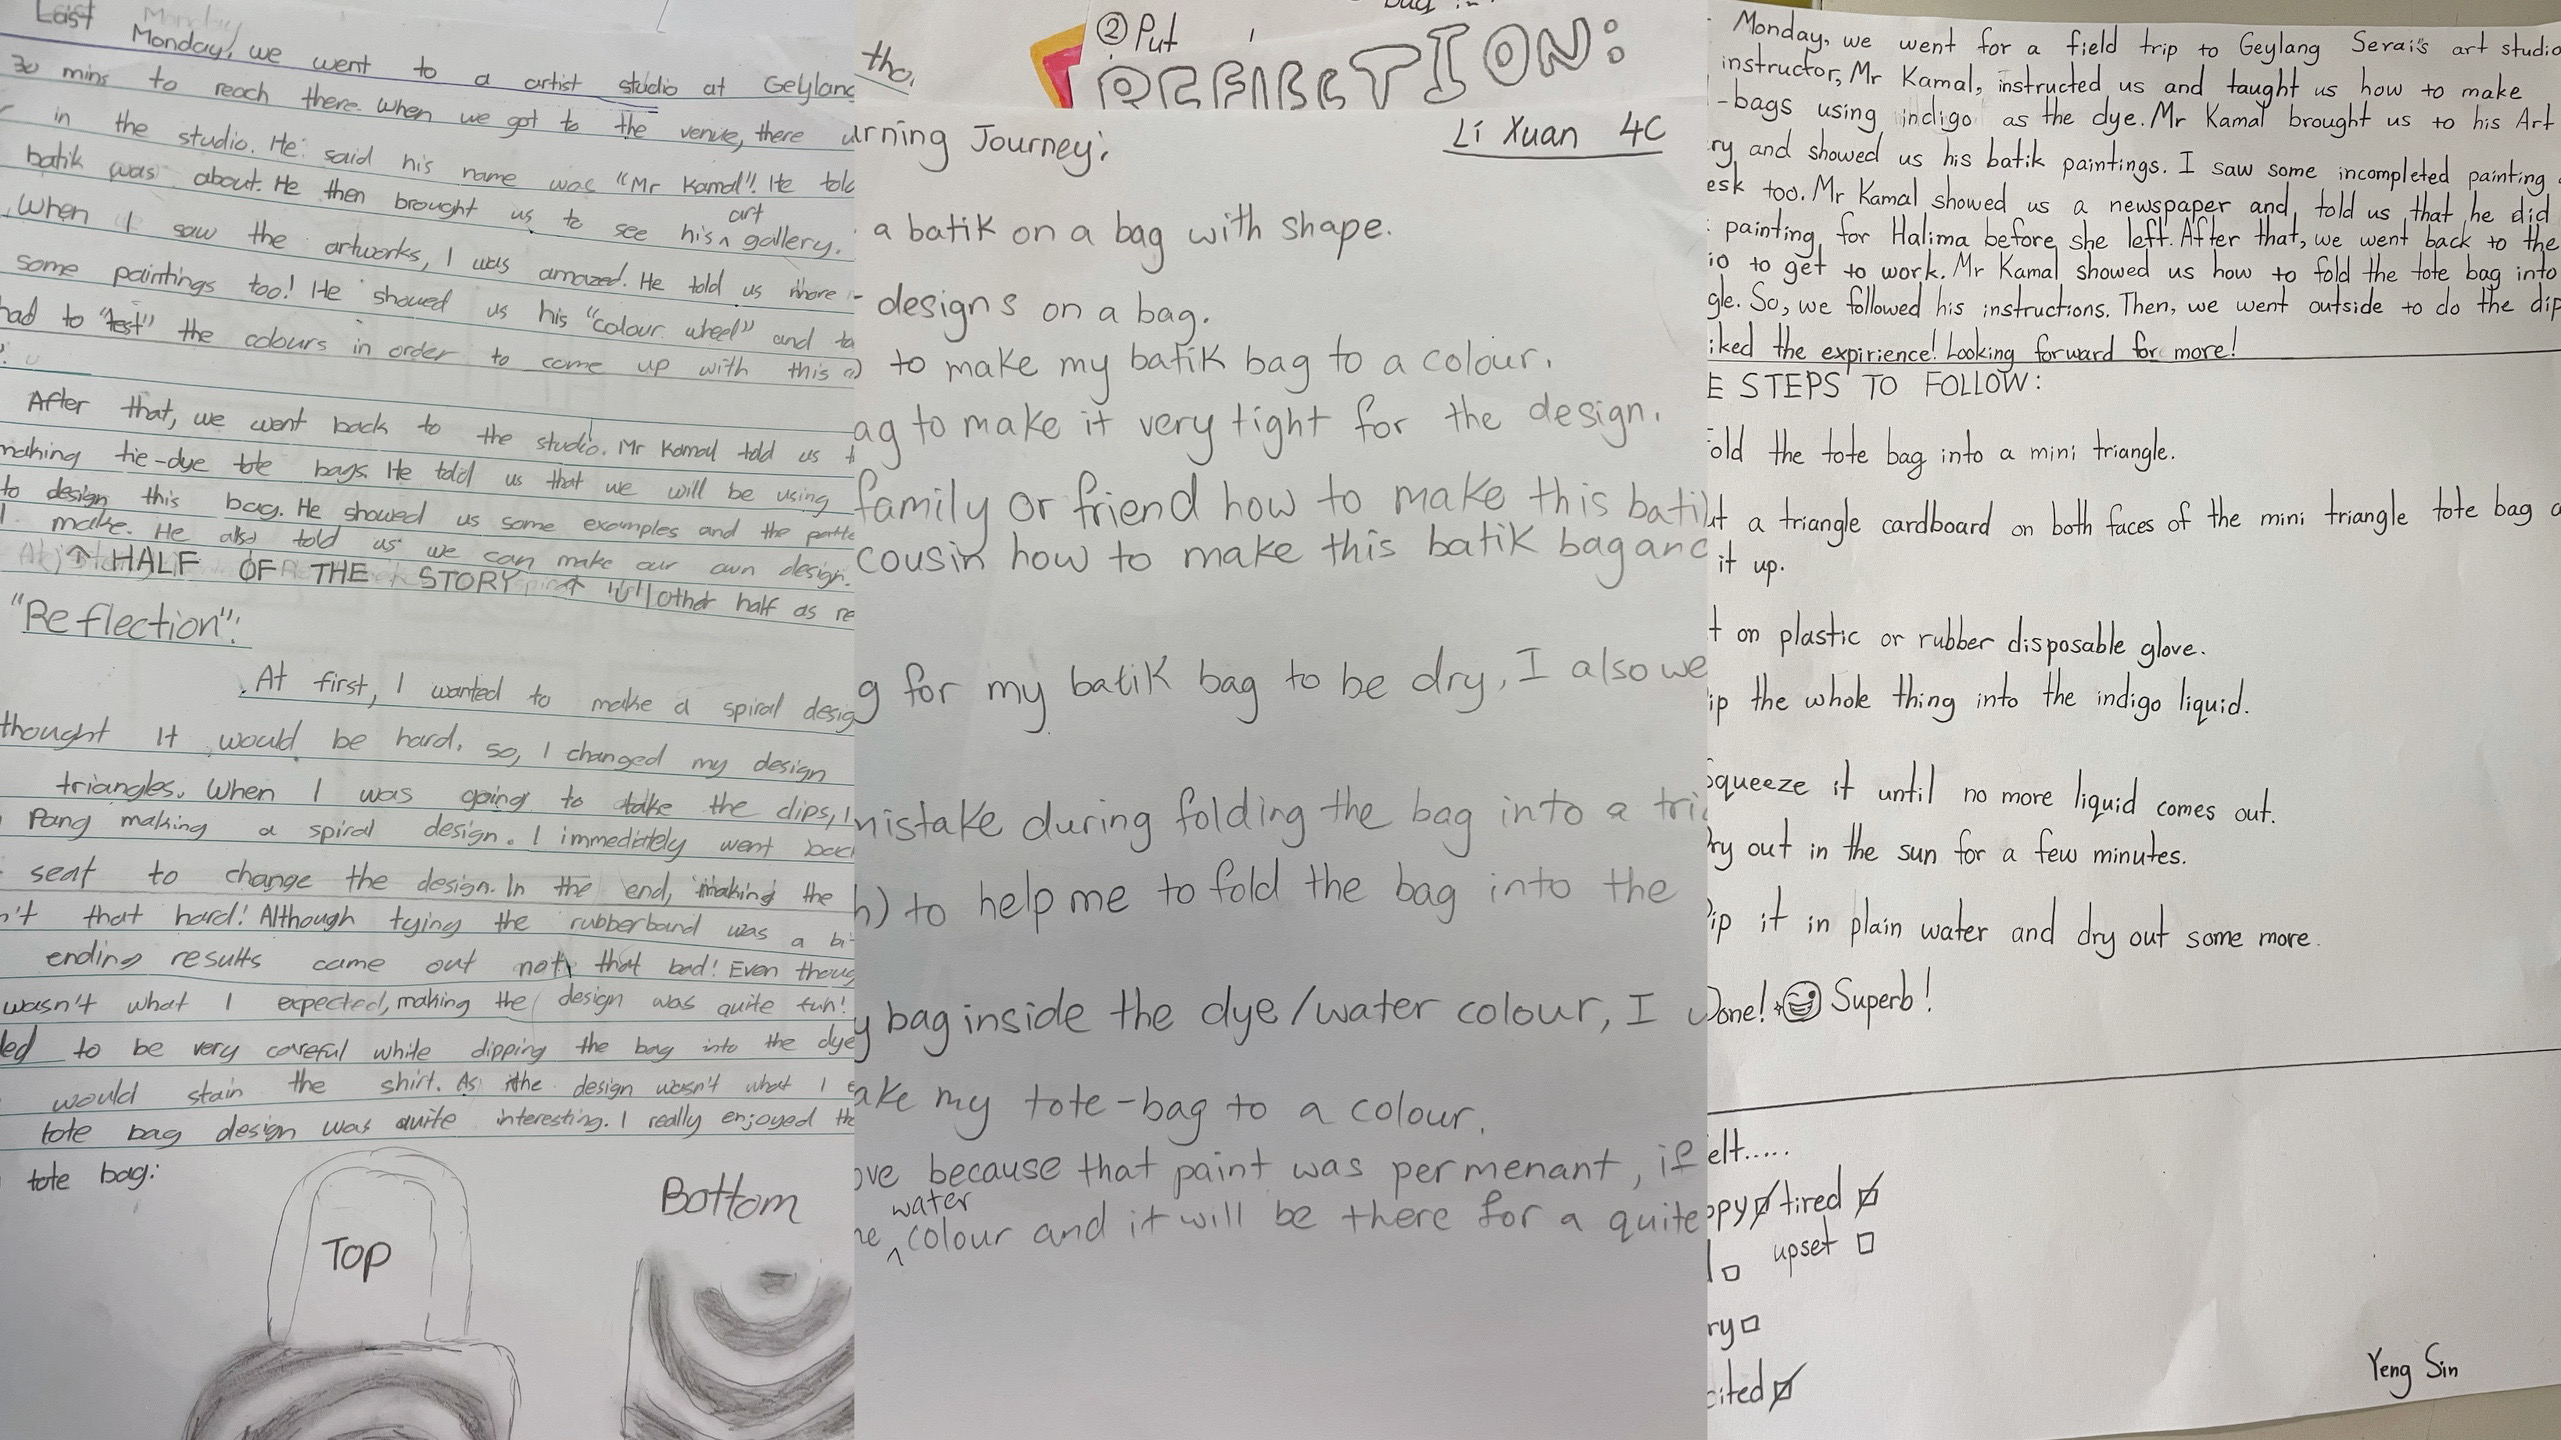 Last Monday, we went to a artist studio at Gelylang
30 mins to reach there. When we got to the venue, there
in the studio. He said his name was "Mr Kamal". He told
batik was about. He then brought us to see his art gallery.
When I saw the artworks, I was amazed. He told us more
some paintings too! He showed us his "colour wheel" and
had to "test" the colours in order to come up with this
After that, we went back to the studio. Mr Kamal told us
making tie-dye tote bags. He told us that we will be using
to design this bag. He showed us some examples and the
make. He also told us we can make our own design.
↑ HALF OF THE STORY ↑ other half as
"Reflection":
At first, I wanted to make a spiral desig
thought it would be hard. so, I changed my design
triangles. When I was going to take the clips, I
Pang making a spiral design. I immedietely went back
seat to change the design. In the end, making the
n't that hard! Although tying the rubberband was a bi
ending results came out not that bad! Even thoug
wasn't what I expected, making the design was quite fun!
ed to be very careful while dipping the bag into the dye
would stain the shirt. As the design wasn't what I
tote bag design was quite interesting. I really enjoyed
tote bag:
Top
Bottom
② Put
REFLECTION:
urning Journey:
Li Xuan 4C
a batik on a bag with shape.
designs on a bag.
to make my batik bag to a colour.
ag to make it very tight for the design.
family or friend how to make this bati
cousin how to make this batik bag anc
g for my batik bag to be dry, I also we
mistake during folding the bag into a tri
h) to help me to fold the bag into the
y bag inside the dye/water colour, I
ake my tote-bag to a colour.
ove because that paint was permenant, if
he water colour and it will be there for a quite
Monday, we went for a field trip to Geylang Serai's art studio
instructor, Mr Kamal, instructed us and taught us how to make
-bags using indigo as the dye. Mr Kamal brought us to his Art
ry and showed us his batik paintings. I saw some incompleted painting
esk too. Mr Kamal showed us a newspaper and told us that he did
painting for Halima before she left. After that, we went back to the
io to get to work. Mr Kamal showed us how to fold the tote bag into
gle. So, we followed his instructions. Then, we went outside to do the dip
iked the expirience! Looking forward for more!
E STEPS TO FOLLOW:
old the tote bag into a mini triangle.
ut a triangle cardboard on both faces of the mini triangle tote bag a
it up.
t on plastic or rubber disposable glove.
ip the whole thing into the indigo liquid.
Squeeze it until no more liquid comes out.
Dry out in the sun for a few minutes.
Dip it in plain water and dry out some more.
Done! Superb!
elt.....
ppy tired
upset
ry
cited
Yeng Sin